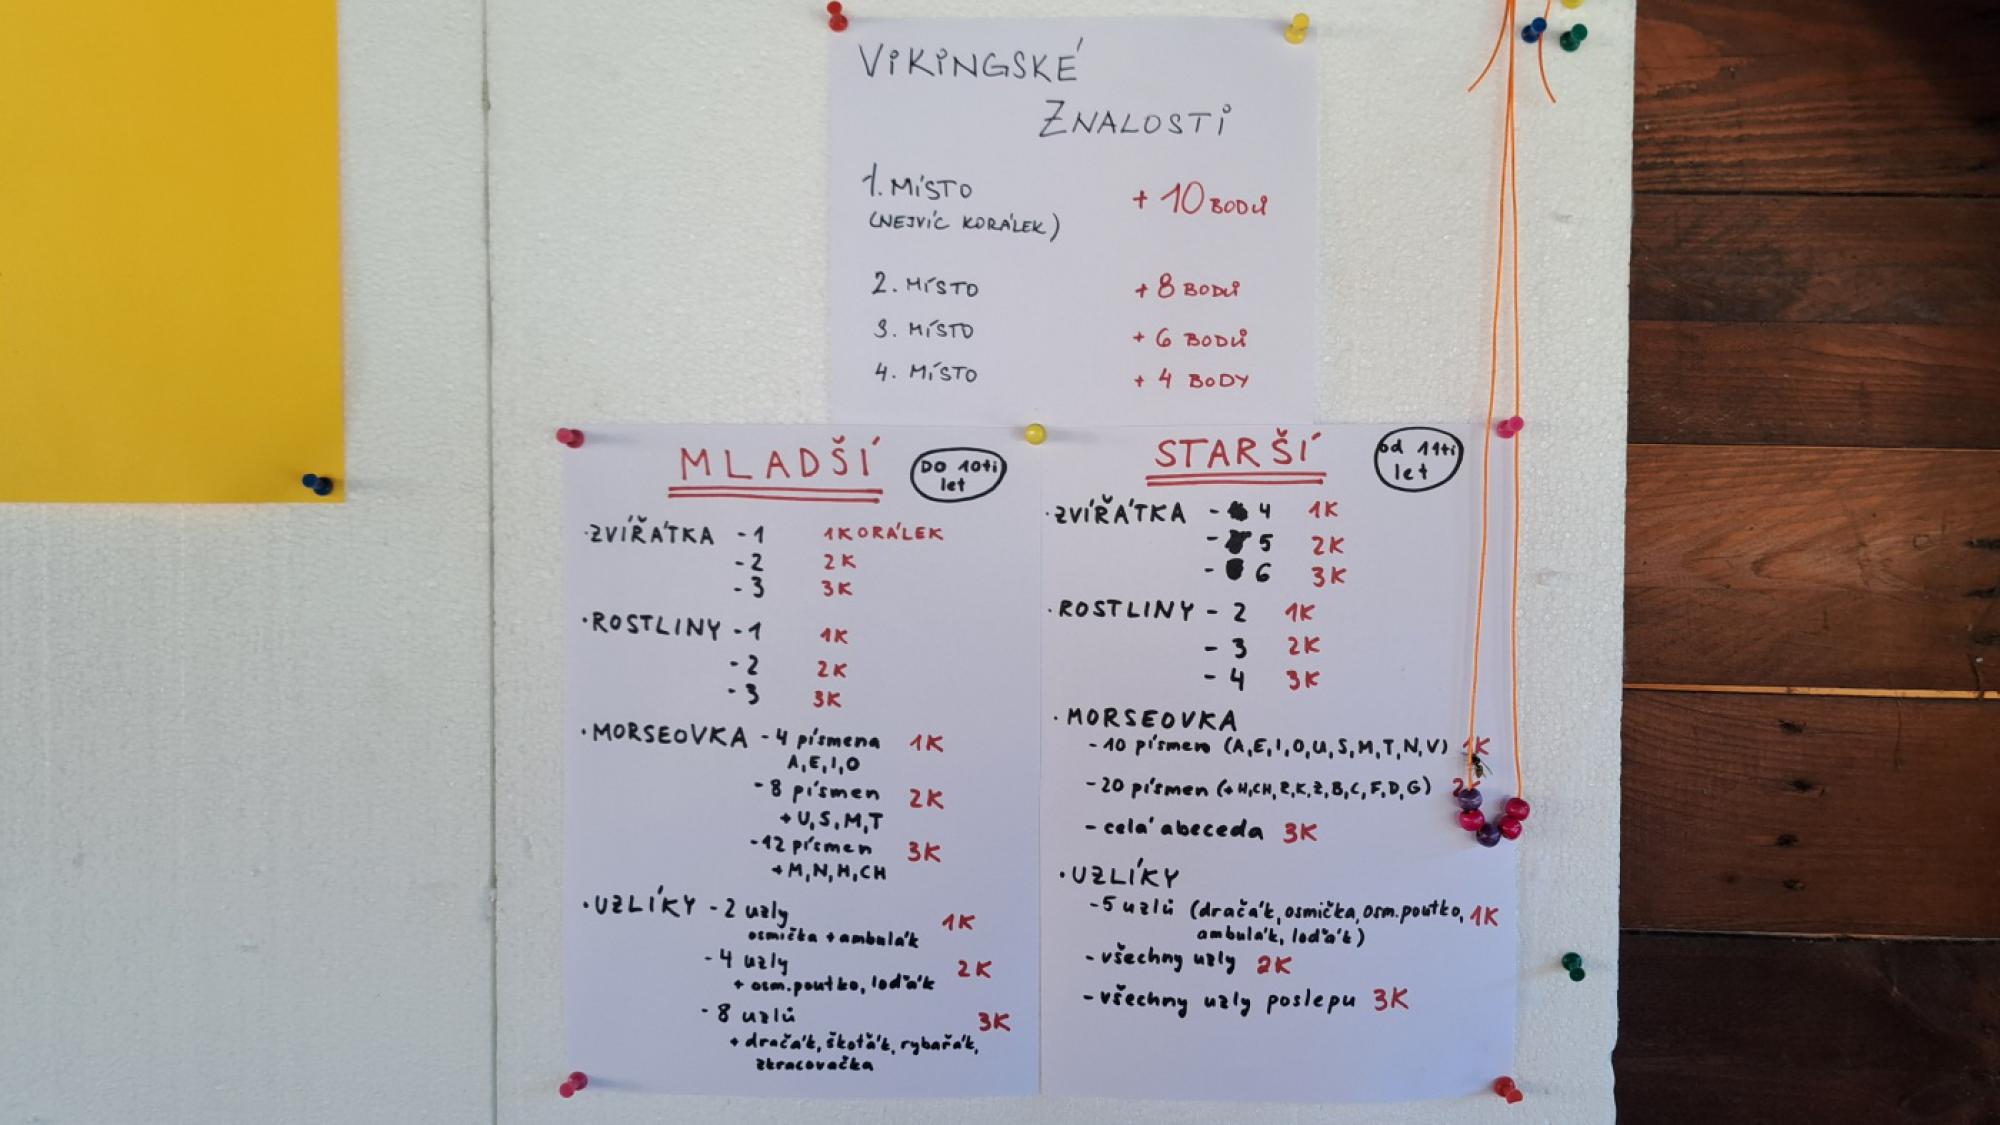 VIKINGSKÉ
ZNALOSTI
1. MÍSTO + 10 BODŮ
(NEJVÍC KORÁLEK)
2. MÍSTO + 8 BODŮ
3. MÍSTO + 6 BODŮ
4. MÍSTO + 4 BODY
MLADŠÍ
DO 10ti
let
·ZVÍŘÁTKA - 1 1KORÁLEK
- 2 2K
- 3 3K
·ROSTLINY - 1 1K
- 2 2K
- 3 3K
·MORSEOVKA - 4 písmena 1K
A,E,I,O
- 8 písmen 2K
+ U,S,M,T
- 12 písmen 3K
+ M,N,H,CH
·UZLÍKY - 2 uzly 1K
osmička + ambulák
- 4 uzly 2K
+ osm.poutko, loďák
- 8 uzlů 3K
+ dračák, škoťák, rybařák,
zkracovačka
STARŠÍ
od 11ti
let
·ZVÍŘÁTKA - 4 1K
- 5 2K
- 6 3K
·ROSTLINY - 2 1K
- 3 2K
- 4 3K
·MORSEOVKA
- 10 písmen (A,E,I,O,U,S,M,T,N,V) 1K
- 20 písmen (+H,CH,R,K,Z,B,C,F,D,G) 2K
- celá abeceda 3K
·UZLÍKY
- 5 uzlů (dračák, osmička, osm.poutko, 1K
ambulák, loďák)
- všechny uzly 2K
- všechny uzly poslepu 3K